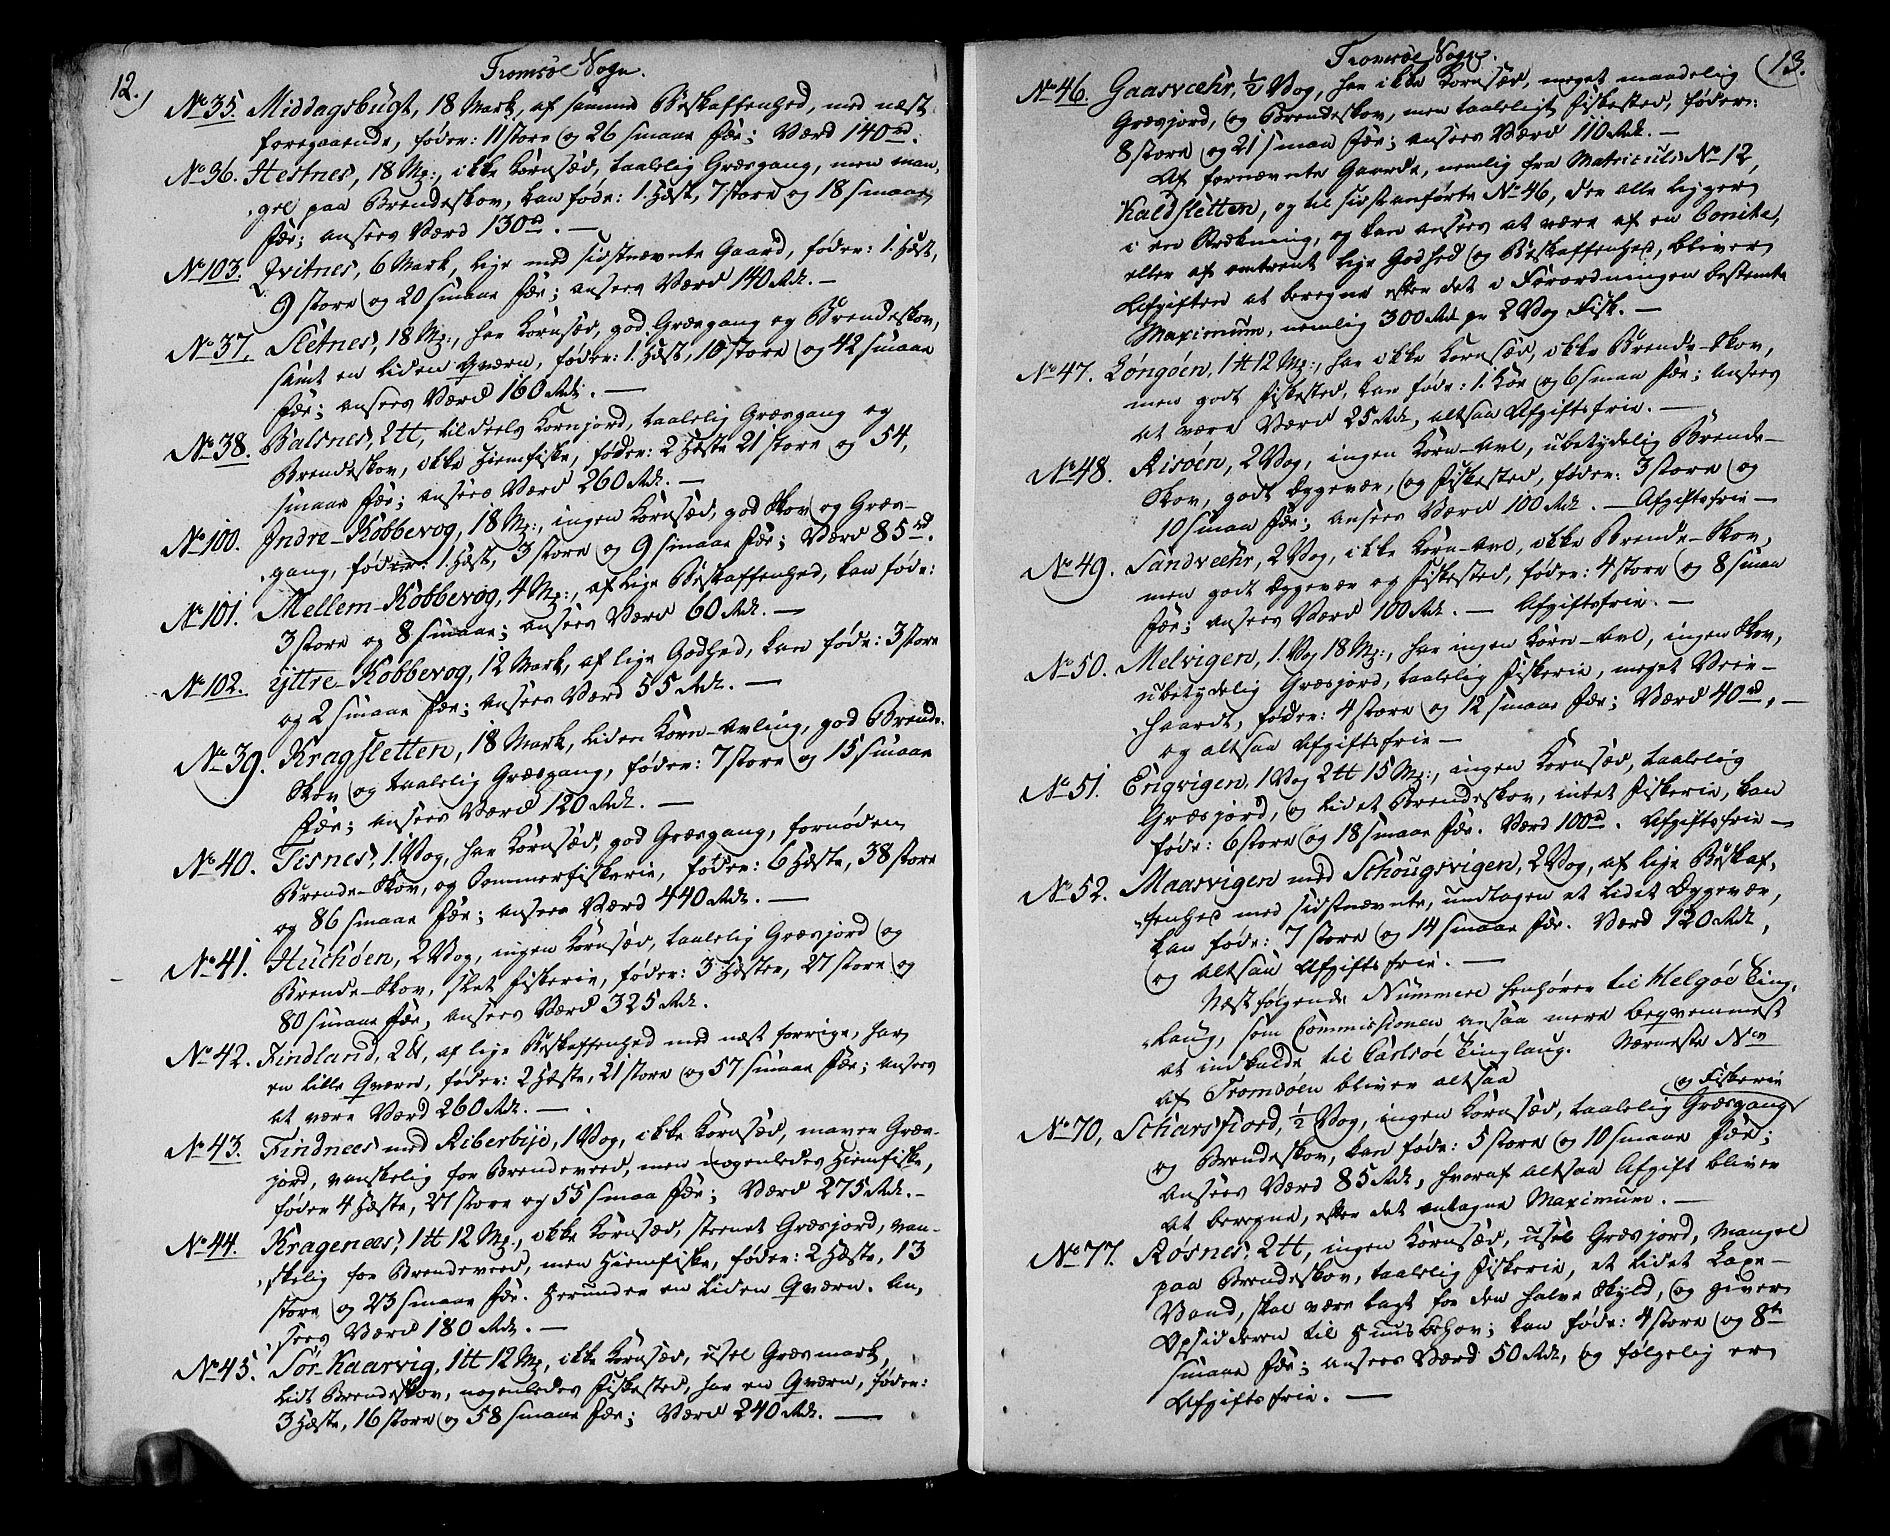 12.)
Tromsöe Sogn.
No 35. Middagsbugt, 18 Mark, af samme Beskaffenhed, med næst
foregaaende, föder: 11 store og 26 smaae Fæe; Værd 140rd.
No 36. Hestnes, 18 Mk:, ikke Kornsæd, taalelig Græsgang, men man,
gel paa Brendeskov, kan föde: 1. Hest, 7 store og 18 smaae
Fæe; ansees Værd 130rd. —
No 103. Qvitnes, 6 Mark, lige med sidstnævnte Gaard, föder: 1. Hest,
9 store og 20 smaae Fæe; ansees Værd 140 Rdr. —
No 37. Sletnes, 18 Mk:, har Kornsæd, god Græsgang og Brendeskov,
samt en liden Qværn, föder: 1. Hest, 10 store og 42 smaae
Fæe; ansees Værd 160 Rdr. —
No 38. Balsnes, 2 tt, tildeels Kornjord, taalelig Græsgang og
Brendeskov, ikke Hiemfiske, föder: 2 Heste 21 store og 54,
smaae Fæe; ansees Værd 260 Rdr. —
No 100. Indre-Kobbevog, 18 Mk:, ingen Kornsæd, god Skov og Græs-
gang, föder: 1. Hest, 3 store og 9 smaae Fæe; Værd 85rd.
No 101. Mellem-Kobbevog, 4 Mk:, af lige Beskaffenhed, kan föde:
3 store og 8 smaae; ansees Værd 60 Rdr. —
No 102. Yttre-Kobbevog, 12 Mark, af lige Godhed, kan föde: 3 store
og 2 smaae Fæe; ansees Værd 55 Rdr. —
No 39. Kragsletten, 18 Mark, liden Korn-Avling, god Brende-
Skov og taalelig Græsgang, föder: 7 store og 15 smaae
Fæe; ansees Værd 120 Rdr. —
No 40. Tisnes, 1. Vog, har Kornsæd, god Græsgang, fornöden
Brende-Skov, og Sommerfiskerie, föder: 6 Heste, 38 store
og 86 smaae Fæe; ansees Værd 440 Rdr. —
No 41. Huchöen, 2 Vog, ingen Kornsæd, taalelig Græsjord og
Brende-Skov, slet Fiskerie, föder: 3 Hester, 27 store og
80 smaae Fæe, ansees Værd 325 Rdr.
No 42. Findland, 2 tt, af lige Beskaffenhed med næst forrige, har
en lille Qværn, föder: 2 Heste, 21 store og 57 smaae Fæe; ansees
at være Værd 260 Rdr. —
No 43. Findnees med Riberbye, 1 Vog, ikke Kornsæd, maver Græs-
jord, vanskelig for Brendeveed, men nogenledes Hiemfiske,
föder 4 Heste, 27 store og 55 smaa Fæe; Værd 275 Rdr. —
No 44. Kragenees, 1 tt 12 Mk:, ikke Kornsæd, steenet Græsjord, van-
skelig for Brendeveed, men Hiemfiske, föder: 2 Heste, 13
store og 23 smaae Fæe. Herunder en liden Qværn. An,
sees Værd 180 Rdr. —
No 45. Sör-Kaarvig, 1 tt 12 Mk, ikke Kornsæd, usel Græsmark,
lidt Brendeskov, nogenledes Fiskested, har en Qværn, föder:
3 Heste, 16 store og 58 smaae Fæe; Værd 240 Rdr. —
Tromsöe Sogn.
(13.
No 46. Gaasvæhr, ½ Vog, har ikke Kornsæd, meget maadelig
Græsjord, og Brendeskov, men taaleligt Fiskested, föder:
8 store og 21 smaa Fæe; ansees Værd 110 Rdr. —
Af fornævnte Gaarde, nemlig fra Matriculs No 12,
Kaldsletten, og til sidstanförte No 46, der alle ligger
i een Strækning, og kan ansees at være af en bonite,
eller af omtrent lige Godhed og Beskaffenhed, bliver
Afgiften at beregne efter det i Forordningen bestemte
Maximum, nemlig 300 Rdr pr 2 Vog Fisk. —
No 47. Löngöen, 1 tt 12 Mk:, har ikke Kornsæd, ikke Brende-Skov,
men godt Fiskested, kan föde: 1. Koe og 6 smaa Fæe; ansees
at være Værd 25 Rdr, altsaa Afgiftsfrie. —
No 48. Risöen, 2 Vog, ingen Korn-Avl, ubetydelig Brende-
Skov, godt Eggevær, og Fiskested, föder: 3 store og
10 smaa Fæe; ansees Værd 100 Rdr. — Afgiftsfrie —
No 49. Sandvæhr, 2 Vog, ikke Korn-Avl, ikke Brende-Skov,
men godt Eggevær og Fiskested, föder: 4 store og 8 smaa
Fæe; ansees Værd 100 Rdr. — Afgiftsfrie. —
No 50. Melvigen, 1. Vog 18 Mk:, har ingen Korn-Avl, ingen Skov,
ubetydelig Græsjord, taalelig Fiskerie, meget Veir-
haardt, föder: 4 store og 12 smaae Fæe; Værd 40rd, —
og altsaa Afgiftsfrie —
No 51. Engvigen, 1 Vog 2 tt 15 Mk:, ingen Kornsæd, taalelig
Græsjord, og lidet Brendeskov, intet Fiskerie, kan
föde: 6 store og 18 smaae Fæe. Værd 100rd. Afgiftsfrie —
No 52. Maasvigen med Schougsvigen, 2 Vog, af lige Beskaf,
fenhed med sidstnævnte, undtagen et lidet Eggevær,
kan föde: 7 store og 14 smaae Fæe. Værd 120 Rdr,
og altsaa Afgiftsfrie. —
Næstfölgende Nummere henhörer til Helgöe Ting,
laug, som Commissionen ansaa mere beqvemmest
at indkalde til Carlsöe Tinglaug. Nærmeste No
af Tromsöen bliver altsaa
og Fiskerie
No 70, Scharsfiord, ½ Vog, ingen Kornsæd, taalelig Græsgang
og Brendeskov, kan föde: 5 store og 10 smaae Fæe;
ansees Værd 85 Rdr, hvoraf altsaa Afgift bliver
at beregne, efter det antagne Maximum. —
No 77. Rösnes, 2 tt, ingen Kornsæd, usel Græsjord, Mangel
paa Brendeskov, taalelig Fiskerie, et lidet Laxe-
Vand, skal være lagt for den halve Skyld, og giver
Opsidderen til Huusbehov; kan föde: 4 store og 8te
smaae Fæe; ansees Værd 50 Rdr, og fölgelig er
Afgiftsfrie. —